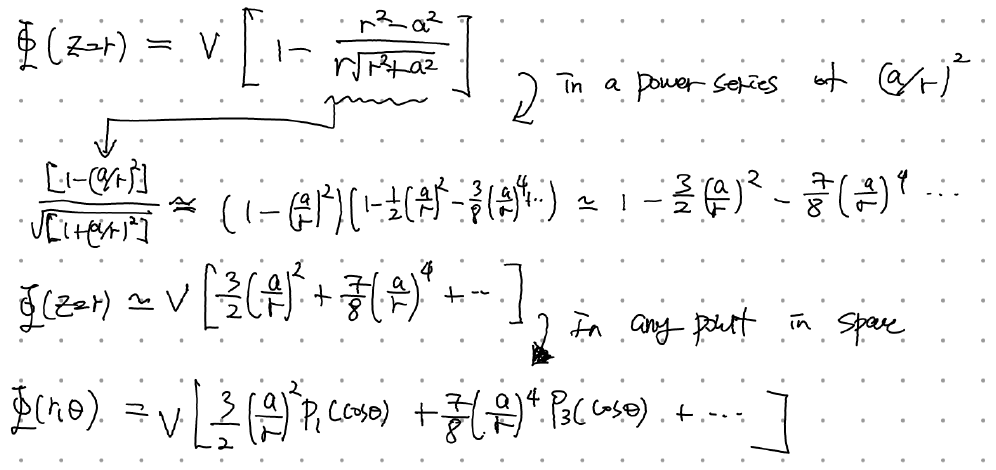 Φ(z=r) = V [ 1 - (r²-a²)/(r√(r²+a²)) ]
in a power series of (a/r)²
[1-(a/r)²]/√[1+(a/r)²] ≃ (1-(a/r)²)(1-½(a/r)²-⅜(a/r)⁴...) ≃ 1 - 3/2(a/r)² - 7/8(a/r)⁴ ...
Φ(z=r) ≃ V [ 3/2(a/r)² + 7/8(a/r)⁴ + ... ]
In any point in space
Φ(r,θ) = V [ 3/2(a/r)² P₁(cosθ) + 7/8(a/r)⁴ P₃(cosθ) + ... ]